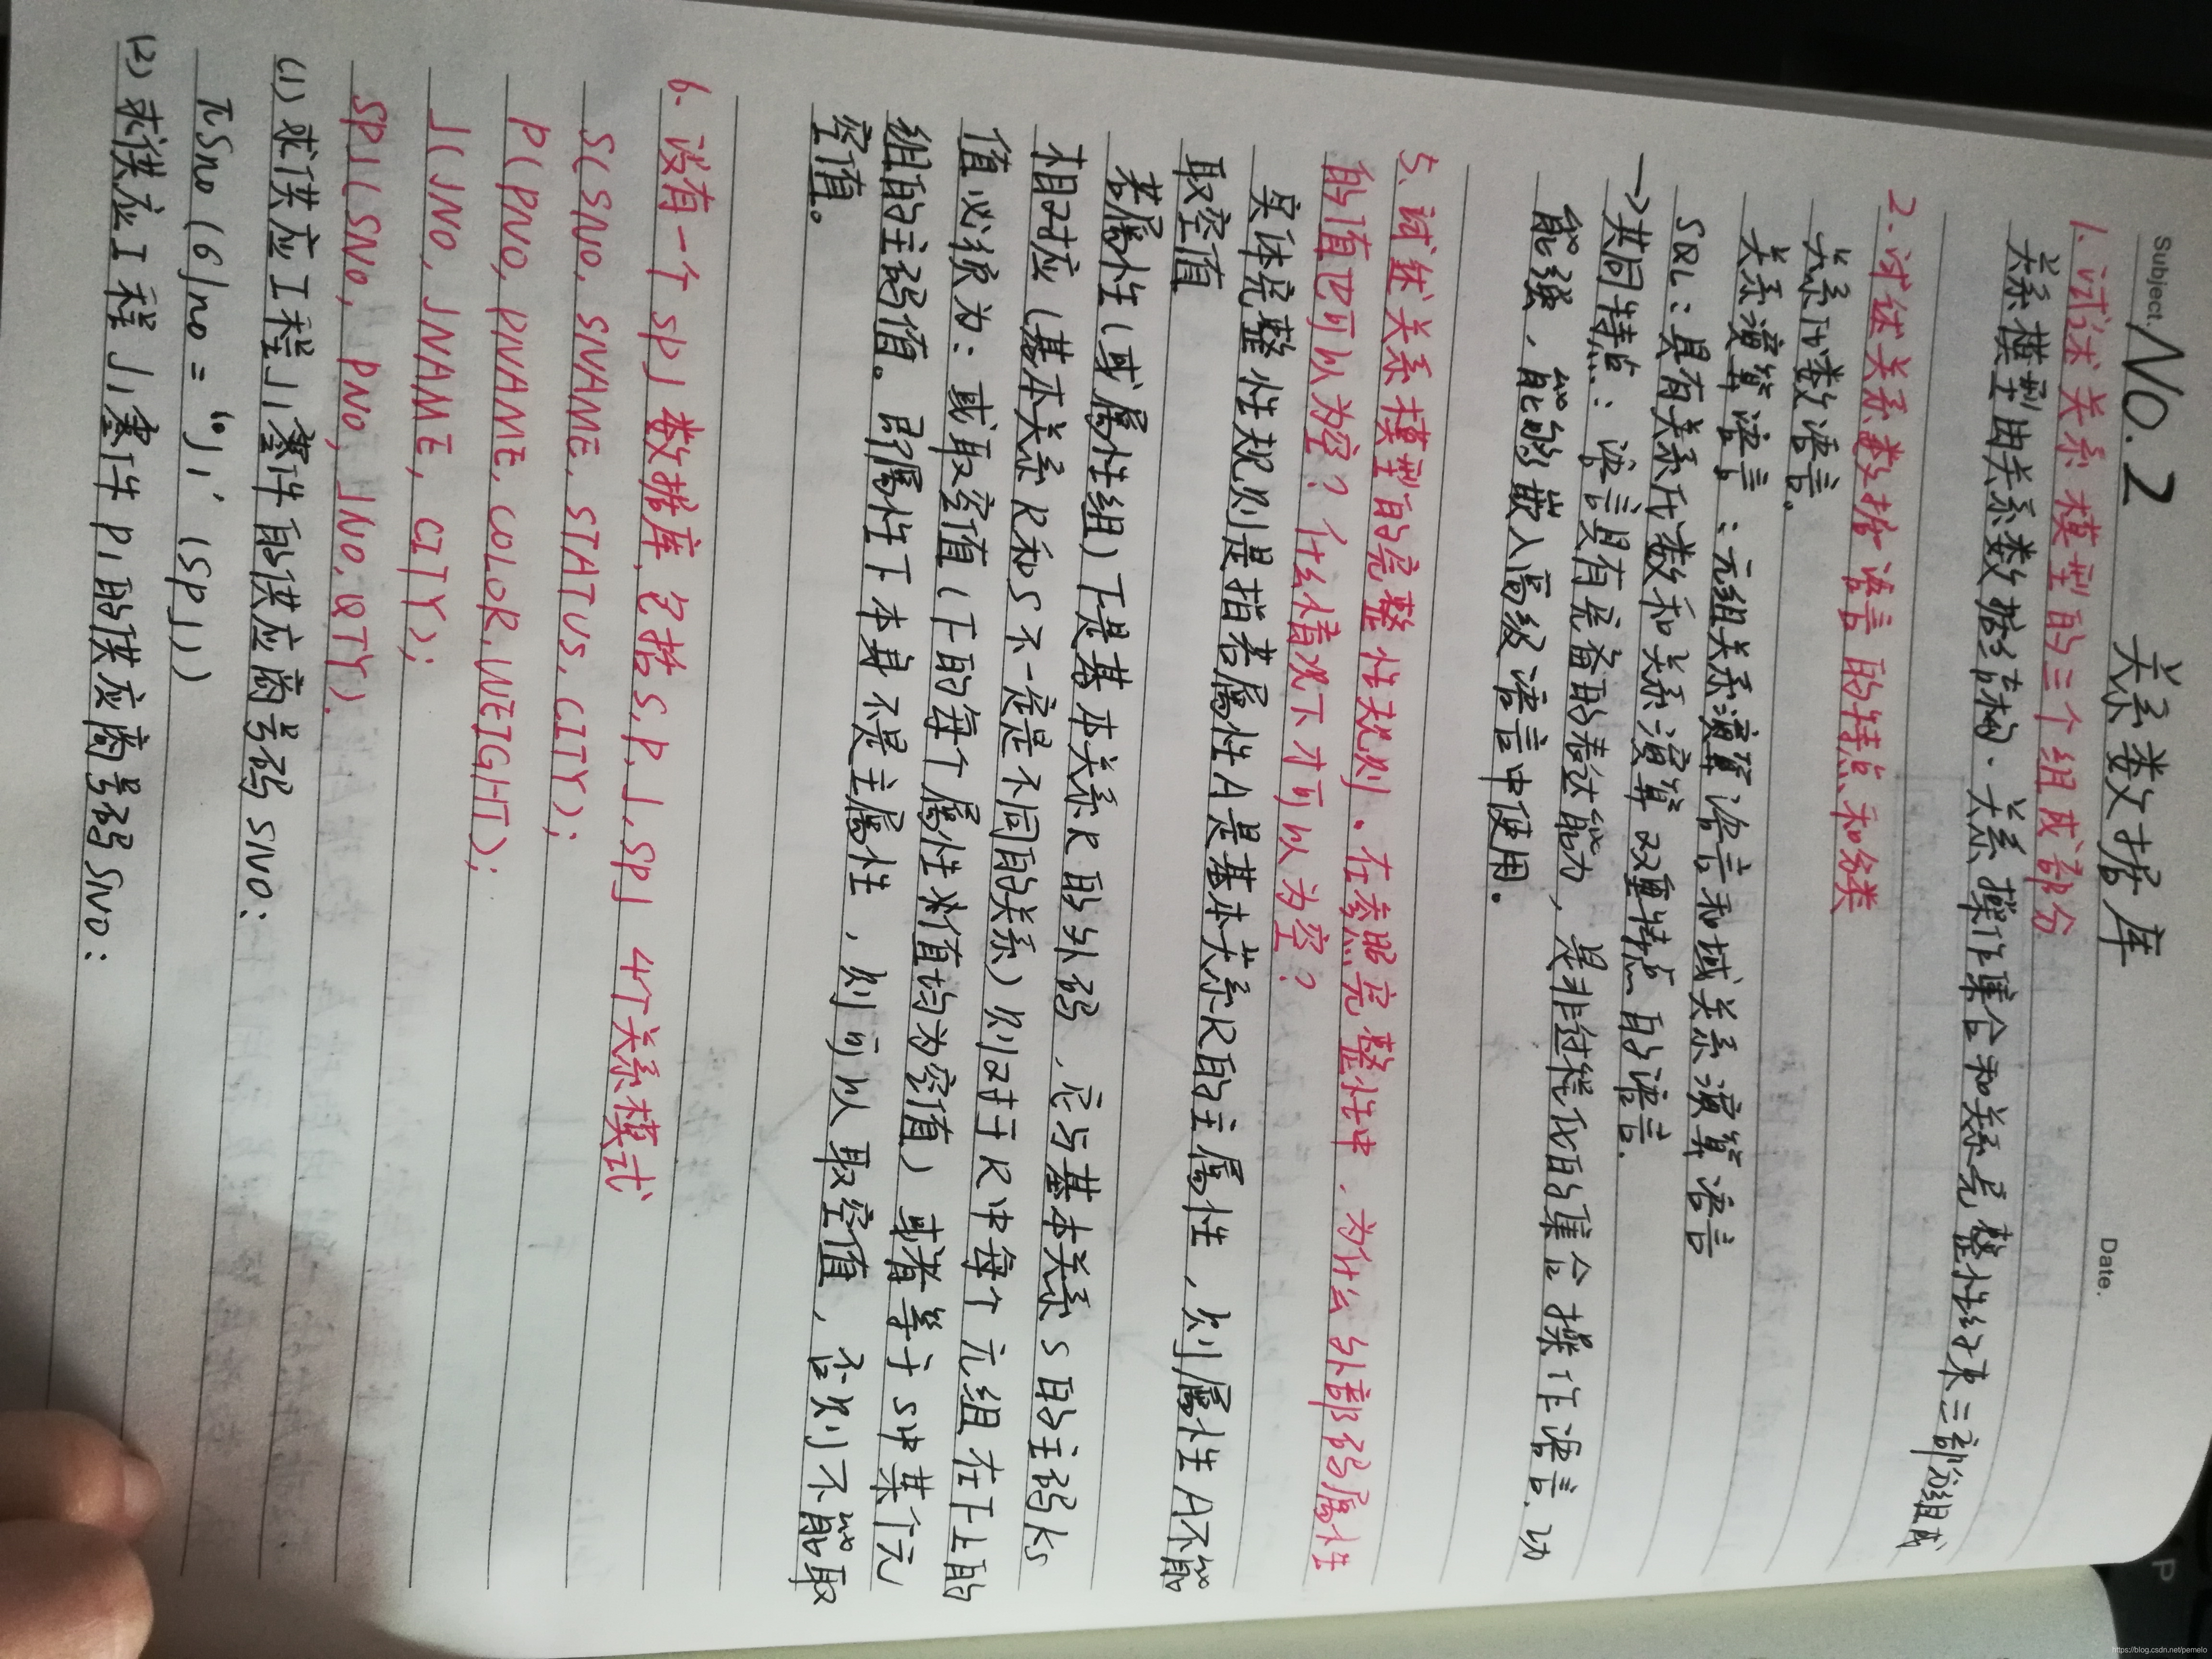 Subject. No.2 关系数据库 Date.
1. 试述关系模型的三个组成部分
关系模型由关系数据结构、关系操作集合和关系完整性约束三部分组成
2. 试述关系数据语言的特点和分类
关系代数语言。
关系演算语言：元组关系演算语言和域关系演算语言
SQL：具有关系代数和关系演算双重特点的语言.
→共同特点：语言具有完备的表达能力，是非过程化的集合操作语言，功
能强，能够嵌入高级语言中使用.
5. 试述关系模型的完整性规则。在参照完整性中，为什么外部码属性
的值也可以为空？什么情况下才可以为空？
实体完整性规则是指若属性A是基本关系R的主属性，则属性A不能
取空值
若属性(或属性组)F是基本关系R的外码，它与基本关系S的主码Ks
相对应(基本关系R和S不一定是不同的关系)则对于R中每个元组在F上的
值必须为：或取空值(F的每个属性性值均为空值)或者等于S中某个元
组的主码值。即属性F本身不是主属性，则可以取空值，否则不能取
空值。
6. 设有一个SPJ数据库，包括S,P,J,SPJ 4个关系模式
S(SNO, SNAME, STATUS, CITY);
P(PNO, PNAME, COLOR, WEIGHT);
J(JNO, JNAME, CITY);
SPJ(SNO, PNO, JNO, QTY).
(1) 求供应工程J1零件的供应商号码SNO:
πSno(σJno=‘J1’(SPJ))
(2) 求供应工程J1零件P1的供应商号码SNO:
P
https://blog.csdn.net/pemelo